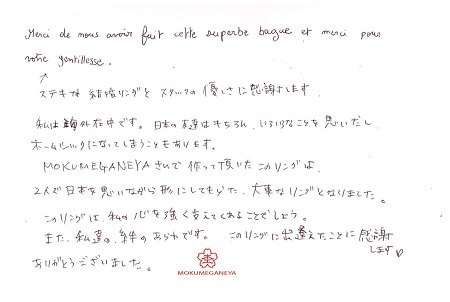 Merci de nous avoir fait cette superbe bague et merci pour
votre gentillesse.
ステキな結婚リングとスタッフの優しさに感謝します
私は海外在中です。日本の友達はもちろん、いろいろなことを思いだし
ホームシックになってしまうこともあります。
MOKUMEGANEYAさんで作って頂いたこのリングは、
2人で日本を思いながら形にしてもらった、大事なリングとなりました。
このリングは、私の心を強く支えてくれることでしょう。
また、私達の絆のあかしです。このリングに出逢えたことに感謝
します♡
ありがとうございました。
MOKUMEGANEYA